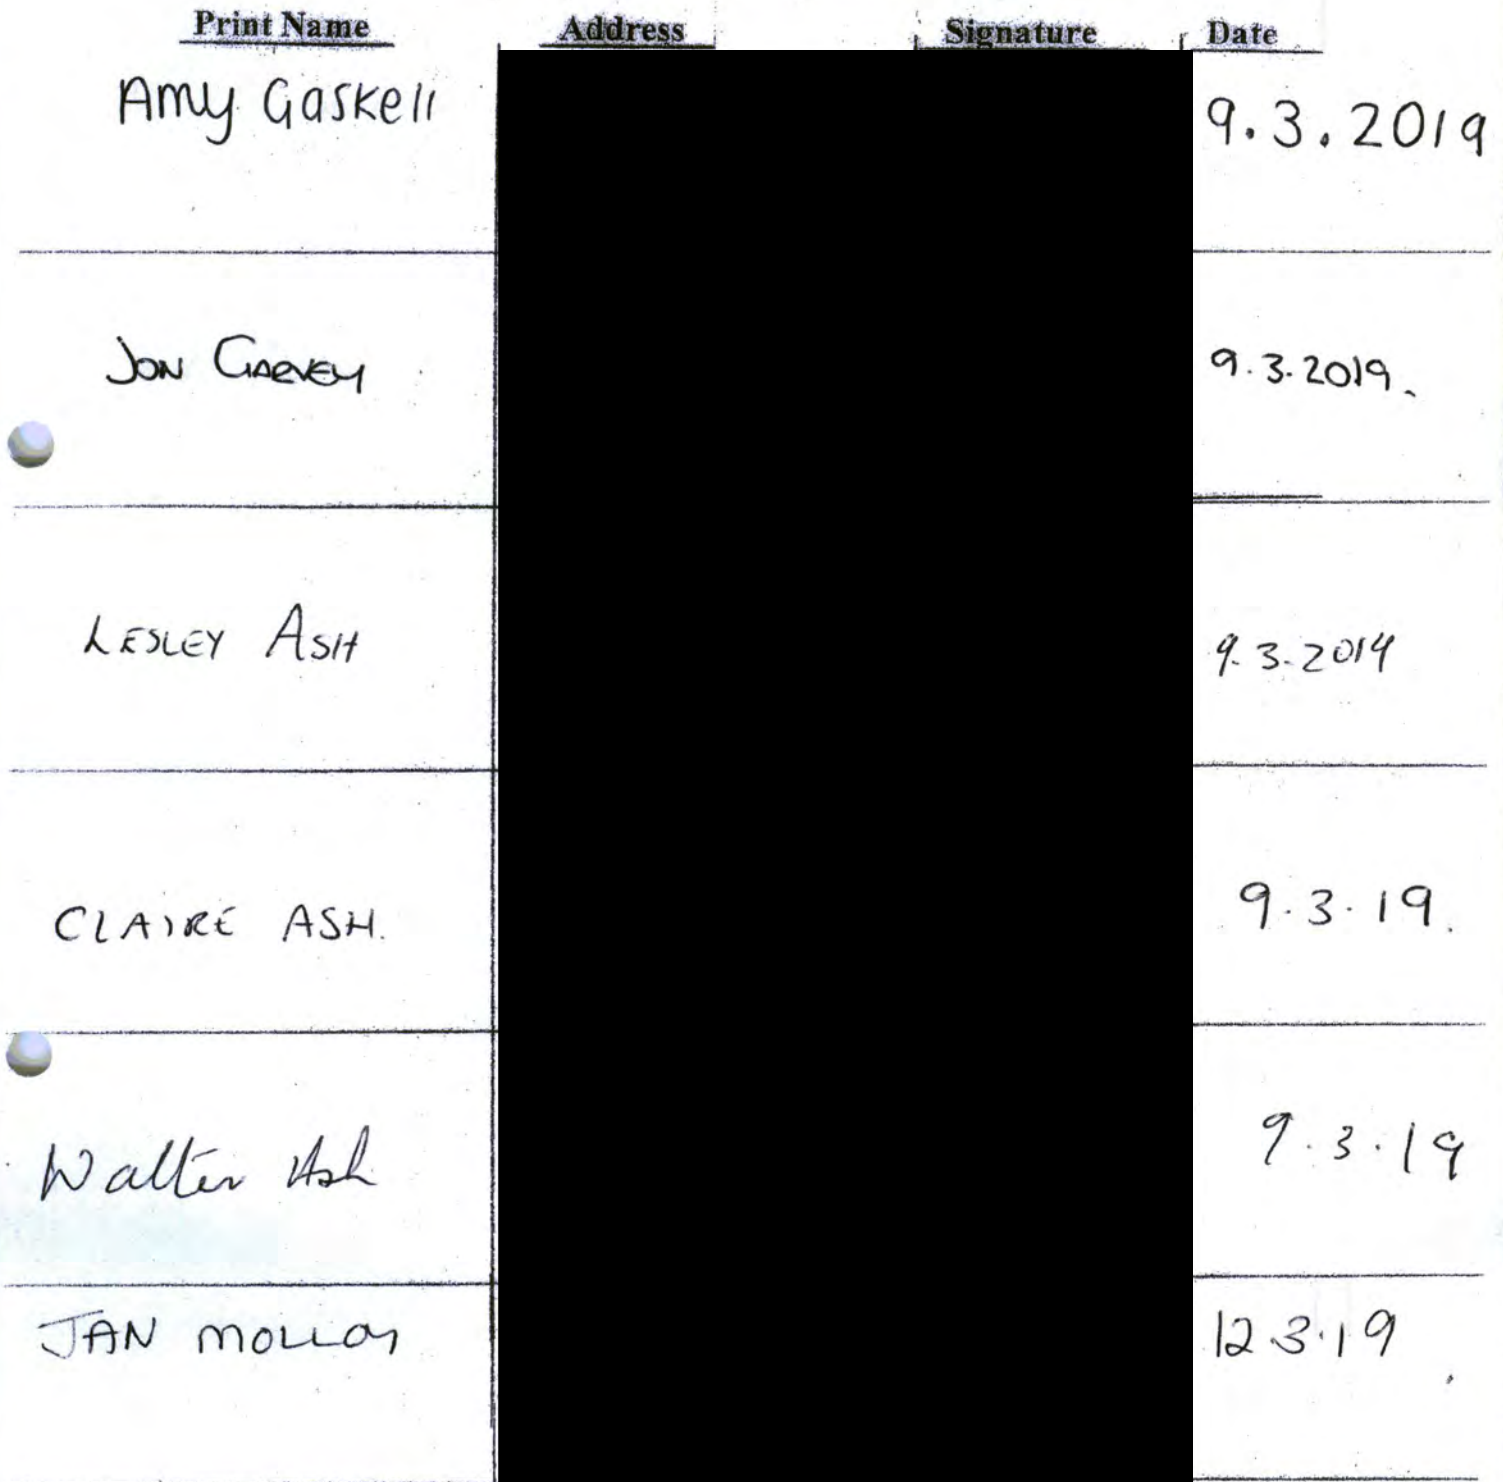 Print Name Address Signature Date
Amy Gaskell 9.3.2019
JON GARVEY 9.3.2019.
LESLEY ASH 9.3.2019
CLAIRE ASH. 9.3.19.
Walter Ash 9.3.19
JAN MOLLOY 12.3.19